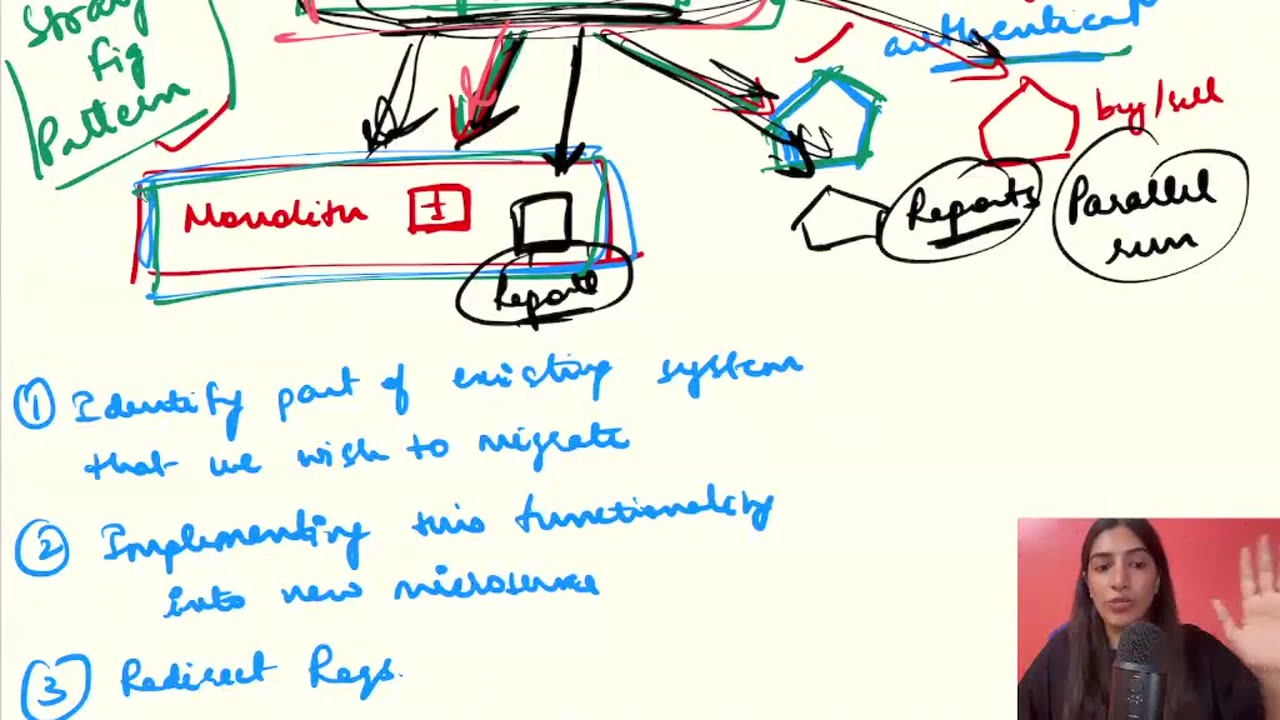 Fig
Pattern
authenticat
buy/sell
Monolith
Reports
Parallel
run
Reports
① Identify part of existing system
that we wish to migrate
② Implementing this functionality
into new microservice
③ Redirect Reqs.